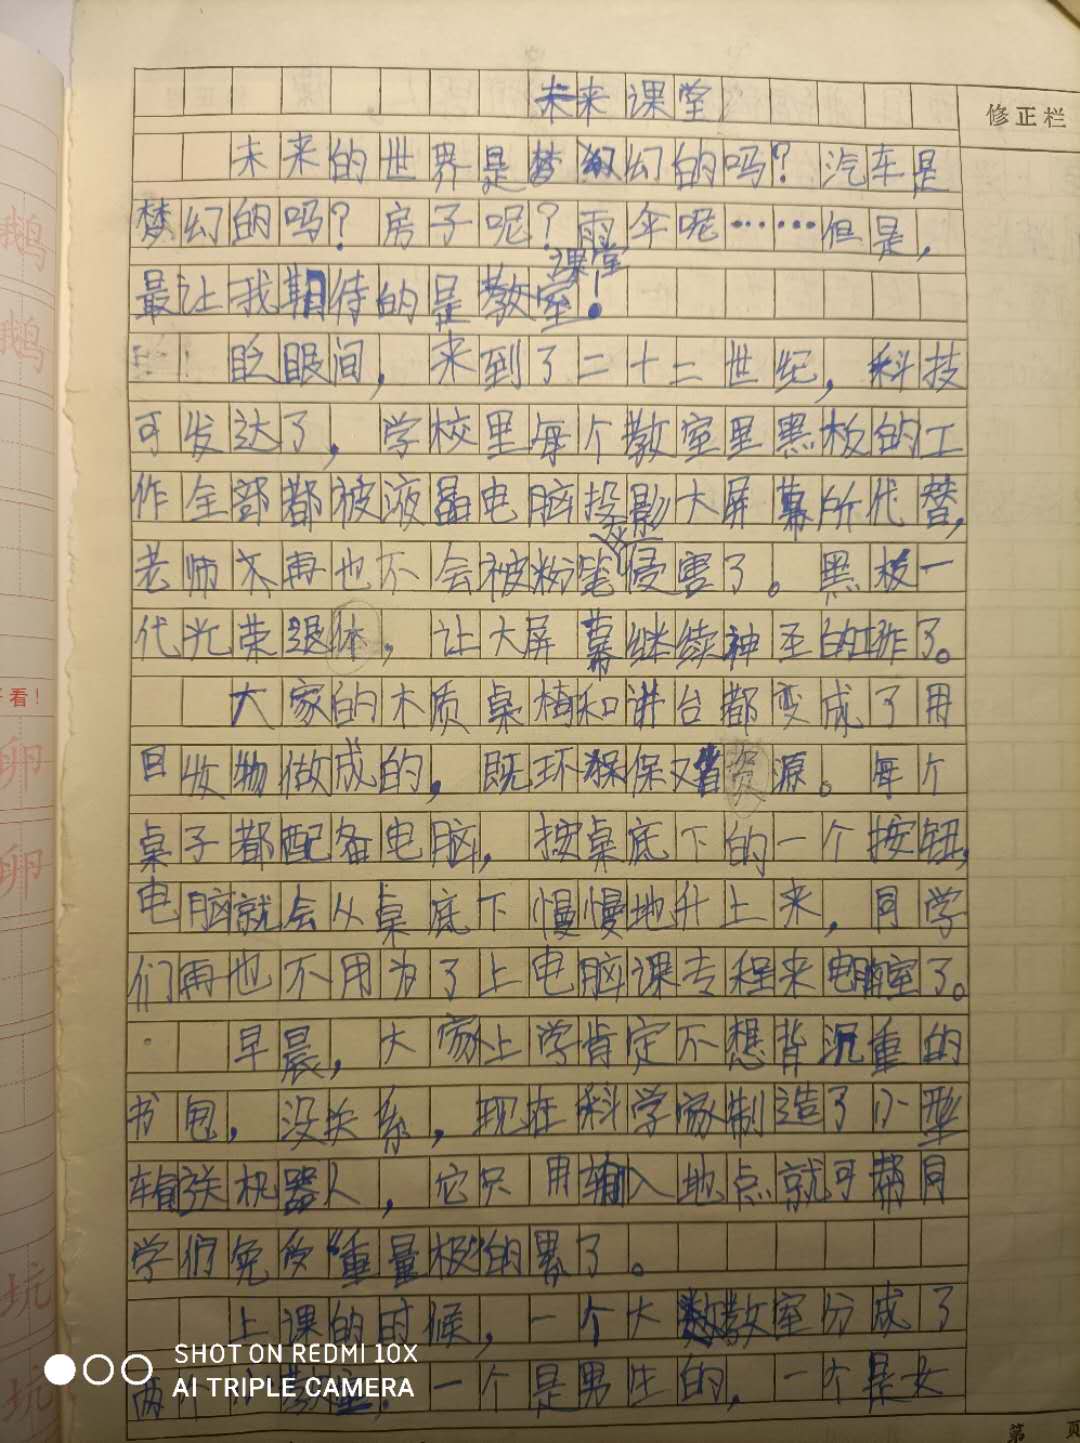 未来课堂
修正栏
未来的世界是梦幻的吗？汽车是
梦幻的吗？房子呢？雨伞呢……但是，
课堂
最让我期待的是教室！
眨眼间，来到了二十二世纪，科技
可发达了，学校里每个教室里黑板的工
作全部都被液晶电脑投影大屏幕所代替，
老师再也不会被粉笔侵害了。黑板一
代光荣退休，让大屏幕继续神圣的工作了。
大家的木质桌椅和讲台都变成了用
回收物做成的，既环保又省资源。每个
桌子都配备电脑，按桌底下的一个按钮，
电脑就会从桌底下慢慢地升上来，同学
们再也不用为了上电脑课专程来电脑室了。
早晨，大家上学肯定不想背沉重的
书包，没关系，现在科学家制造了小型
机器人，它只用输入地点就可帮同
学们免受“重量极”的累了。
上课的时候，一个大教室分成了
两个小教室，一个是男生的，一个是女
第 页
看！
鹅
鹅
卵
卵
坑
坑
SHOT ON REDMI 10X
AI TRIPLE CAMERA